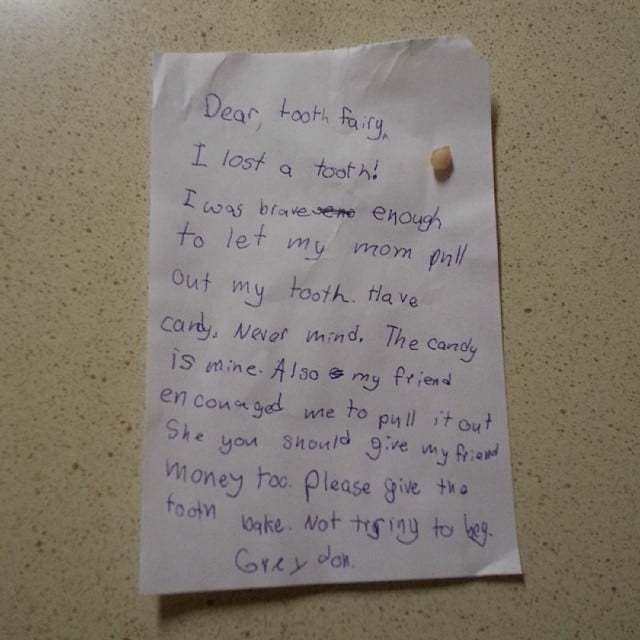 Dear, tooth fairy,
I lost a tooth!
I was brave enough
to let my mom pull
out my tooth. Have
candy. Never mind. The candy
is mine. Also my friend
encouaged me to pull it out
She you should give my friend
money too. Please give the
tooth bake. Not trying to beg.
Greydon.